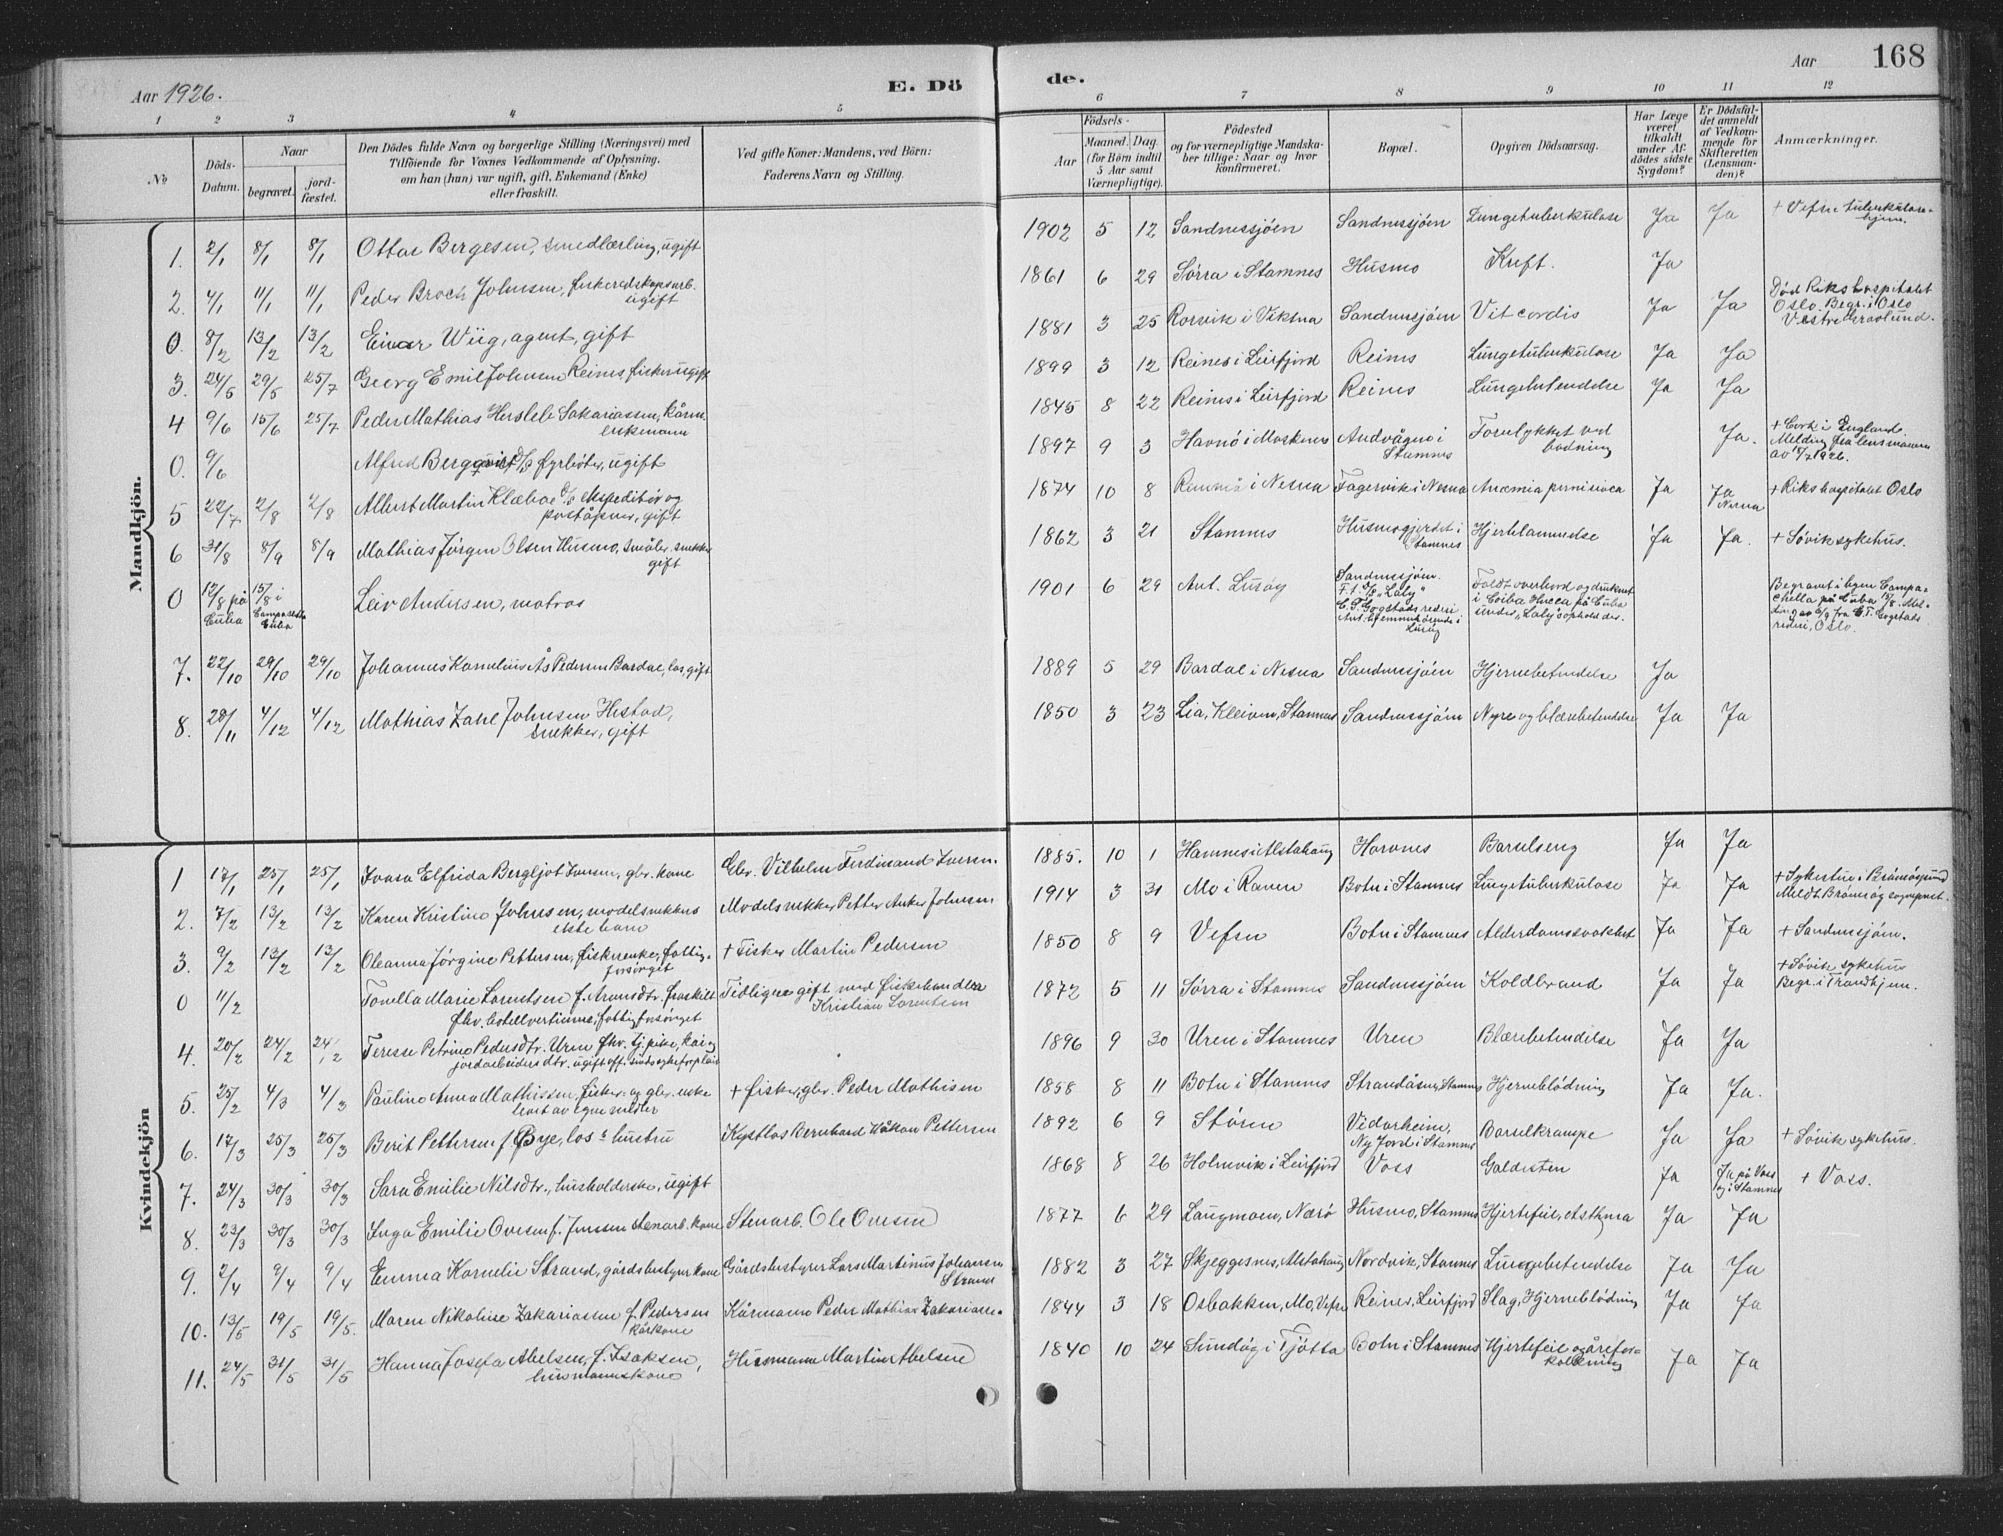 Aar 1926.
E. Dö
de.
Aar
168
1 2 3 4 5 6 7 8 9 10 11 12
No
Döds-Datum.
Naar
begravet.
jord-fæstet.
Den Dödes fulde Navn og borgerlige Stilling (Næringsvei) med
Tilföiende for Voxnes Vedkommende af Oplysning,
om han (hun) var ugift, gift, Enkemand (Enke)
eller fraskilt.
Ved gifte Koner: Mandens, ved Börn:
Faderens Navn og Stilling.
Födsels-
Aar
Maaned. Dag.
(for Börn indtil
5 Aar samt
Værnepligtige).
Födested
og for værnepligtige Mandska-
ber tillige: Naar og hvor
konfirmeret.
Bopæl.
Opgiven Dödsaarsag.
Har Læge
været
tilkaldt
under Af-
dödes sidste
Sygdom?
Er Dödsfal-
det anmeldt
af Vedkom-
mende for
Skifteretten
(Lensman-
den)?
Anmærkninger.
Mandkjön.
1. 2/1 8/1 8/1 Ottar Bergesen, smedlærling, ugift 1902 5 12 Sandnessjöen Sandnessjöen Lungetuberkulose Ja Ja + Vefsn tuberkulose-
hjem.
2. 4/1 11/1 11/1 Peder Broch Johnsen, fiskeredskapsarb.
ugift 1861 6 29 Sörra i Stamnes Husmo Kreft. Ja
0. 8/2 13/2 13/2 Einar Wiig, agent, gift 1881 3 25 Rorvik i Vikna Sandnessjöen Vit cordis Ja Ja Död Rikshospitalet
Oslo. Begr. i Oslo
Vestre Gravlund.
3 24/5 29/5 25/7 Georg Emil Johnsen Reines fisker ugift 1899 3 12 Reines i Leirfjord Reines Lungetuberkulose Ja Ja
4 9/6 15/6 25/7 Peder Mathias Hersleb Sakariassen, kårm.
enkemann 1845 8 22 Reines i Leirfjord Reines Lungebetendelse Ja Ja
0. 9/6 Alfred Bergqvist D/S fyrböter, ugift 1897 9 3 Havnö i Moskenes Andvågen i
Stamnes Forulykket ved
badning Ja. + Cork i England.
Melding fra lensmannen
av 17/7 1926.
5 22/7 2/8 2/8 Albert Martin Klæboe D/S ekspeditör og
poståpner, gift 1874 10 8 i Nesna Fagervik i Nesna Anæmia pernisiosa Ja Ja
Nesna + Rikshospitalet Oslo
6 31/8 8/9 8/9 Mathias Jörgen Olsen Husmo, småbr. snekker
gift 1862 3 21 Stamnes Husmogjerdet i
Stamnes Hjertelammelse Ja Ja. + Sövik sykehus.
0 12/8 på
Cuba 15/8 i
Cuba Leiv Andersen, matros 1901 6 29 Ant. Lusög Sandnessjöen.
F. t. D/S "Laly"
C. T. Gogstads rederi
Ant. hjemmehörende i
Lusög Faldt overbord og druknet
i på Cuba
under "Laly's" ophold der. Begravet i byen Campa-
chella på Cuba 15/8. Mel-
ding av 6/9 fra C. T. Gogstads
rederi, Oslo.
7. 22/10 29/10 29/10 Johannes Kornelius Ås Pedersen Bardal, los, gift 1889 5 29 Bardal i Nesna Sandnessjöen Hjernebetendelse Ja
8. 28/11 4/12 4/12 Mathias Zahl Johnsen Hestad,
snekker, gift 1850 3 23 Lia, Kleiven, Stamnes Sandnessjöen Nyre og blærebetendelse Ja Ja
Kvindekjön
1 17/1 25/1 25/1 Ivara Elfrida Bergljot Iversen, gbr. kone Gbr. Vilhelm Ferdinand Iversen. 1885. 10 1 Hamnes i Alstahaug Horvnes Barselseng Ja Ja
2. 7/2 13/2 13/2 Karen Kristine Johnsen, modelsnekkers
ekte barn Modelsnekker Petter Anker Johnsen 1914 3 31 Mo i Ranen Botn i Stamnes Lungetuberkulose Ja Ja + Sykestue i Brönöysund
Meldt Brönöy sogneprest.
3. 9/2 13/2 13/2 Oleanna Jörgine Pettersen, fiskerenke, fattig-
forsörget + Fisker Martin Pedersen 1850 8 9 Vefsn Botn i Stamnes Alderdomssvakhet Ja Ja + Sandnessjöen.
0 11/2 Tonella Marie Lorentsen f. Aronsdtr. fraskilt
fhv. hotellvertinne, fattigforsörget Tidligere gift med fiskehandler
Kristian Lorentsen 1872 5 11 Sörra i Stamnes Sandnessjöen Koldbrand Ja Ja + Sövik sykehus
Begr. i Trondhjem.
4. 20/2 24/2 24/2 Terese Petrine Pedersdtr. Uren fhv. tj. pike, kai og
jordarbeiders dtr. ugift off. sindssykeforpleid 1896 9 30 Uren i Stamnes Uren Blærebetendelse Ja Ja
5. 25/2 4/3 4/3 Pauline Anna Mathissen, fisker- og gbr. enke
levet av egne midler + fisker, gbr. Peder Mathisen 1858 8 11 Botn i Stamnes Strandåsen, Stamnes Hjerneblödning Ja Ja.
6. 17/3 25/3 25/3 Berit Pettersen f. Öye, los's hustru Kystlos Bernhard Håkon Pettersen 1892 6 9 Stören Vidarheim,
Ny Jord i Stamnes Barselkrampe Ja Ja + Sövik sykehus.
7. 24/3 30/3 30/3 Sara Emilie Nilsdtr., husholderske, ugift 1868 8 26 Holmvik i Leirfjord Voss Galdesten Ja Ja på Voss
og i Stamnes + Voss.
8. 23/3 30/3 30/3 Inga Emilie Ovesen f. Jenssen stenarb. kone Stenarb. Ole Ovesen 1877 6 29 Langmoen, Nærö Husmo, Stamnes Hjertefeil, Asthma Ja Ja
9. 2/4 9/4 9/4 Emma Kornelie Strand, gårdsbestyrer kone Gårdsbestyrer Lars Martinus Johansen
Strand 1882 3 27 Skjeggesnes, Alstahaug Nordvik, Stamnes Lungebetendelse Ja Ja
10. 13/5 19/5 19/5. Maren Nikoline Zakariassen f. Pedersen
kårkone Kårmann Peder Mathias Zakariassen. 1844 3 18 Osbakken, Mo, Vefsn Reines, Leirfjord Slag, Hjerneblödning Ja Ja
11. 24/5 31/5 31/5 Hanna Josefa Abelsen, f. Isaksen,
husmannskone Husmann Martin Abelsen 1840 10 24 Sundög i Tjötta Botn i Stamnes Hjertefeil og årefor-
kalkning Ja Ja